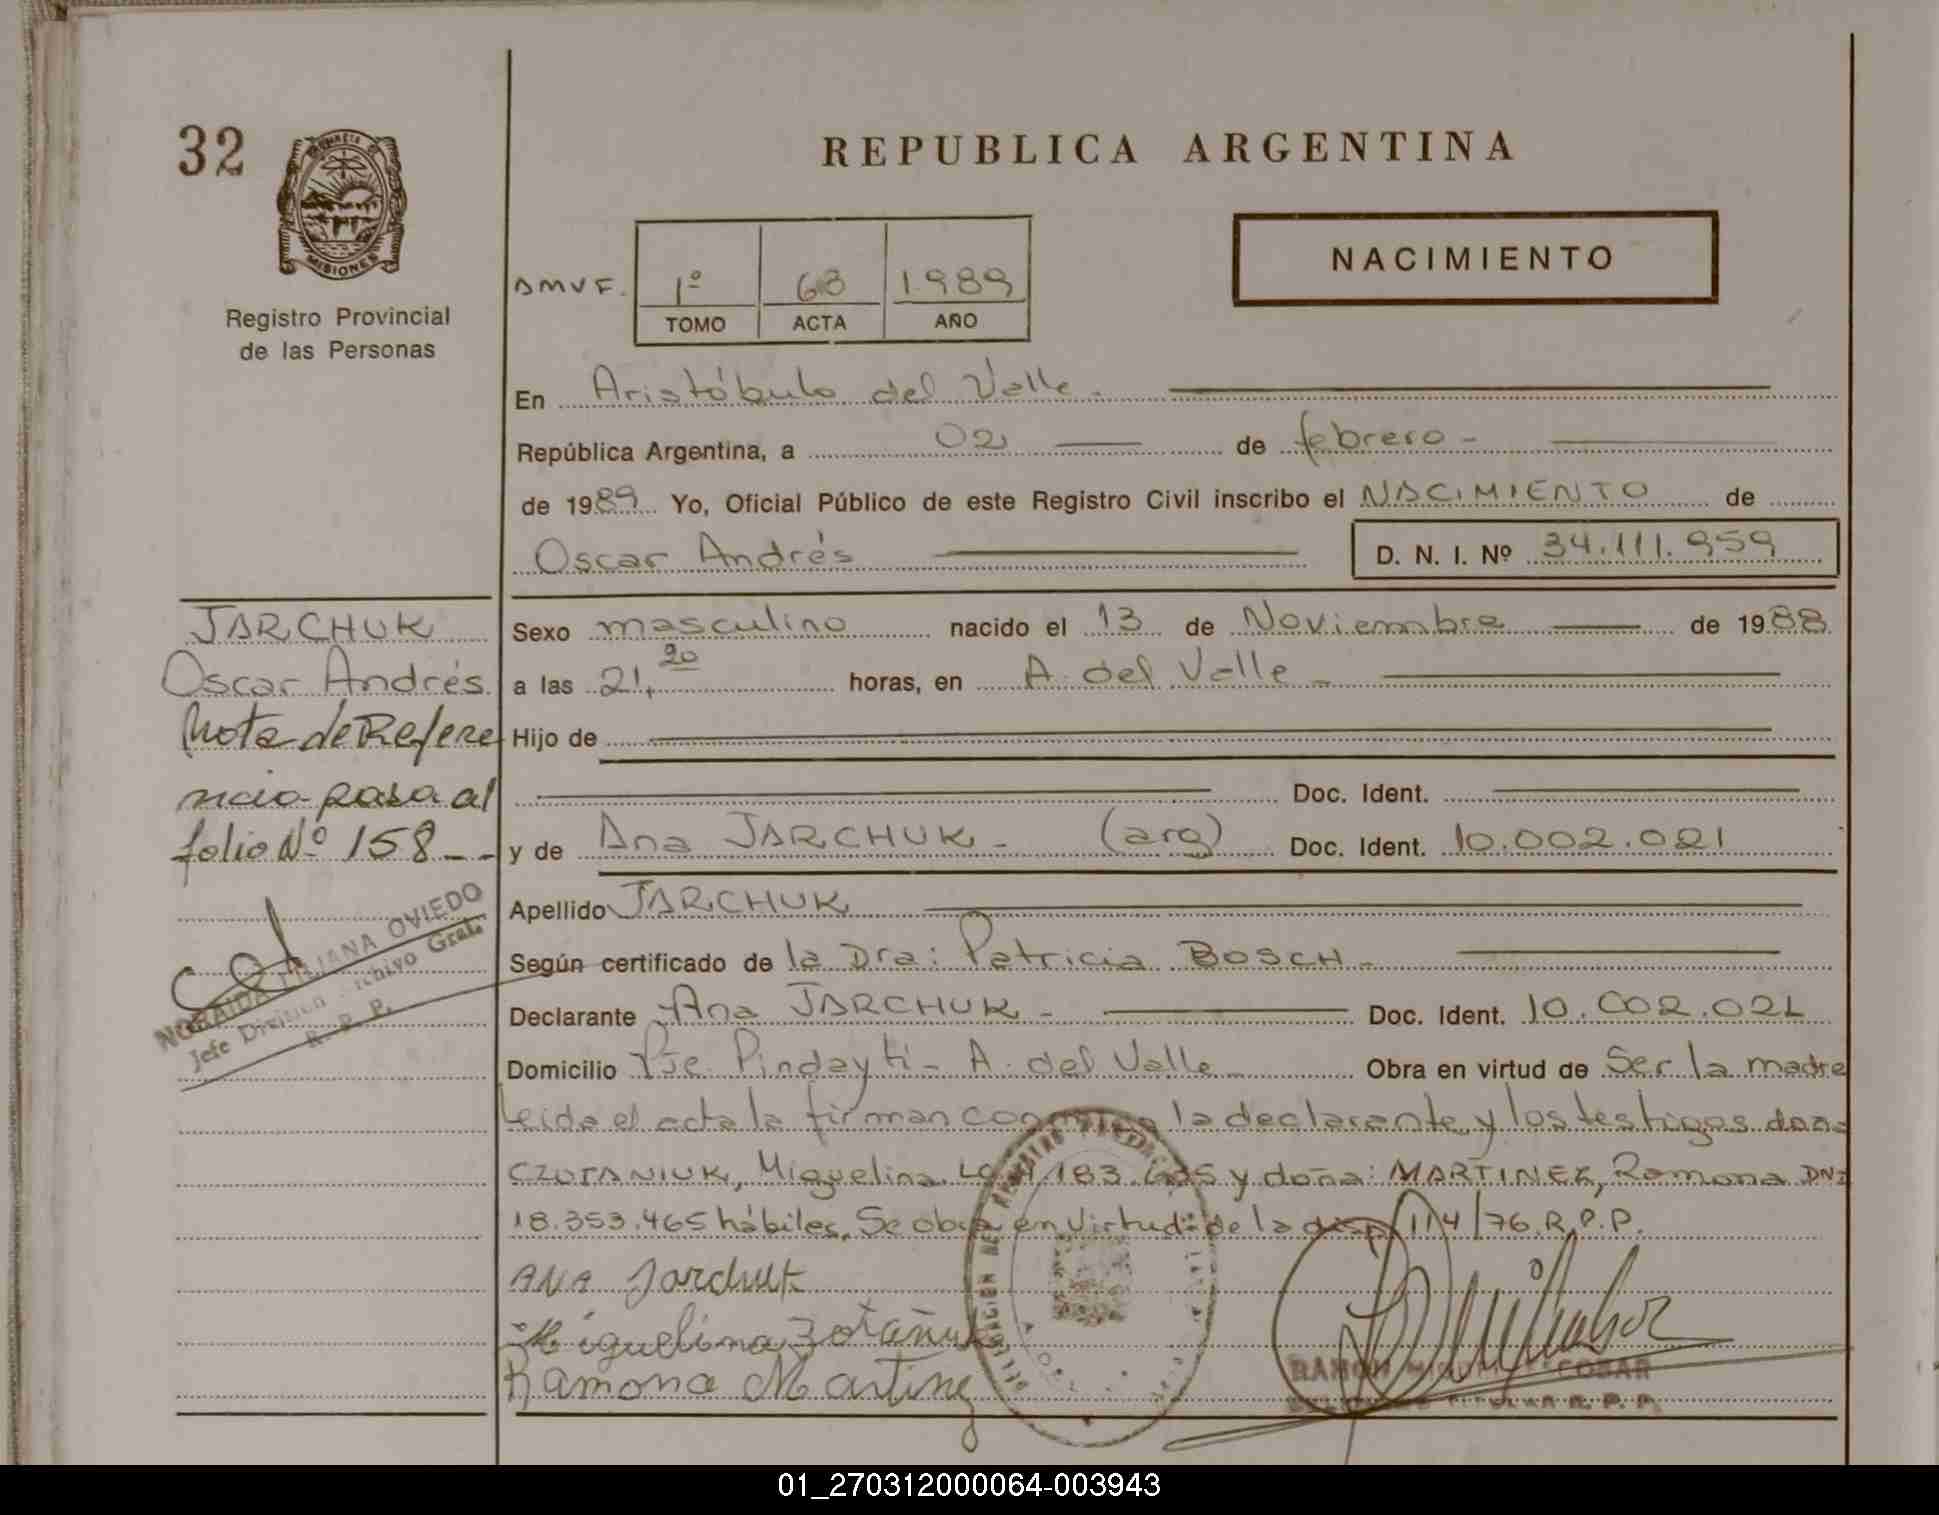 32
MISIONES
Registro Provincial
de las Personas
REPUBLICA ARGENTINA
NACIMIENTO
1º 63 1989
TOMO ACTA AÑO
En Aristóbulo del Valle -
República Argentina, a 02 de febrero -
de 1989 Yo, Oficial Público de este Registro Civil inscribo el NACIMIENTO de
Oscar Andrés
D. N. I. Nº 34.111.959
JARCHUK
Oscar Andrés
Nota de Refere
ncia pasa al
folio Nº 158 - -
OVIEDO
Jefe División Archivo Gral.
R. P. P.
Sexo masculino nacido el 13 de Noviembre de 1988
a las 21,20 horas, en A. del Valle -
Hijo de
Doc. Ident.
y de Ana JARCHUK - (arg) Doc. Ident. 10.002.021
Apellido JARCHUK
Según certificado de la Dra: Patricia BOSCH -
Declarante Ana JARCHUK - Doc. Ident. 10.002.021
Domicilio Pje Pindayti - A. del Valle Obra en virtud de Ser la madre
Leida el acta la firman la declarante y los testigos doña
Miguelina y doña: MARTINEZ, Ramona DNI
18.353.465 hábiles. Se obra en virtud de la disp 114/76 R.P.P.
ANA Jarchuk
Miguelina
Ramona Martinez
01_270312000064-003943